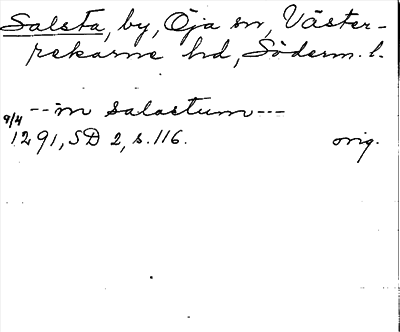 Salsta, by, Öja sn, Väster-
rekarne hd, Söderm. l.
--- in salastum ---
9/4
1291, SD 2, s. 116. orig.